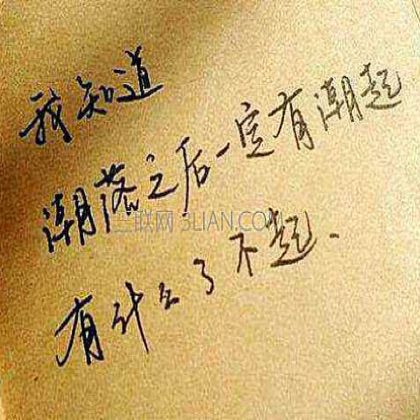 我知道
潮落之后一定有潮起
三联网 3LIAN.COM
有什么了不起.